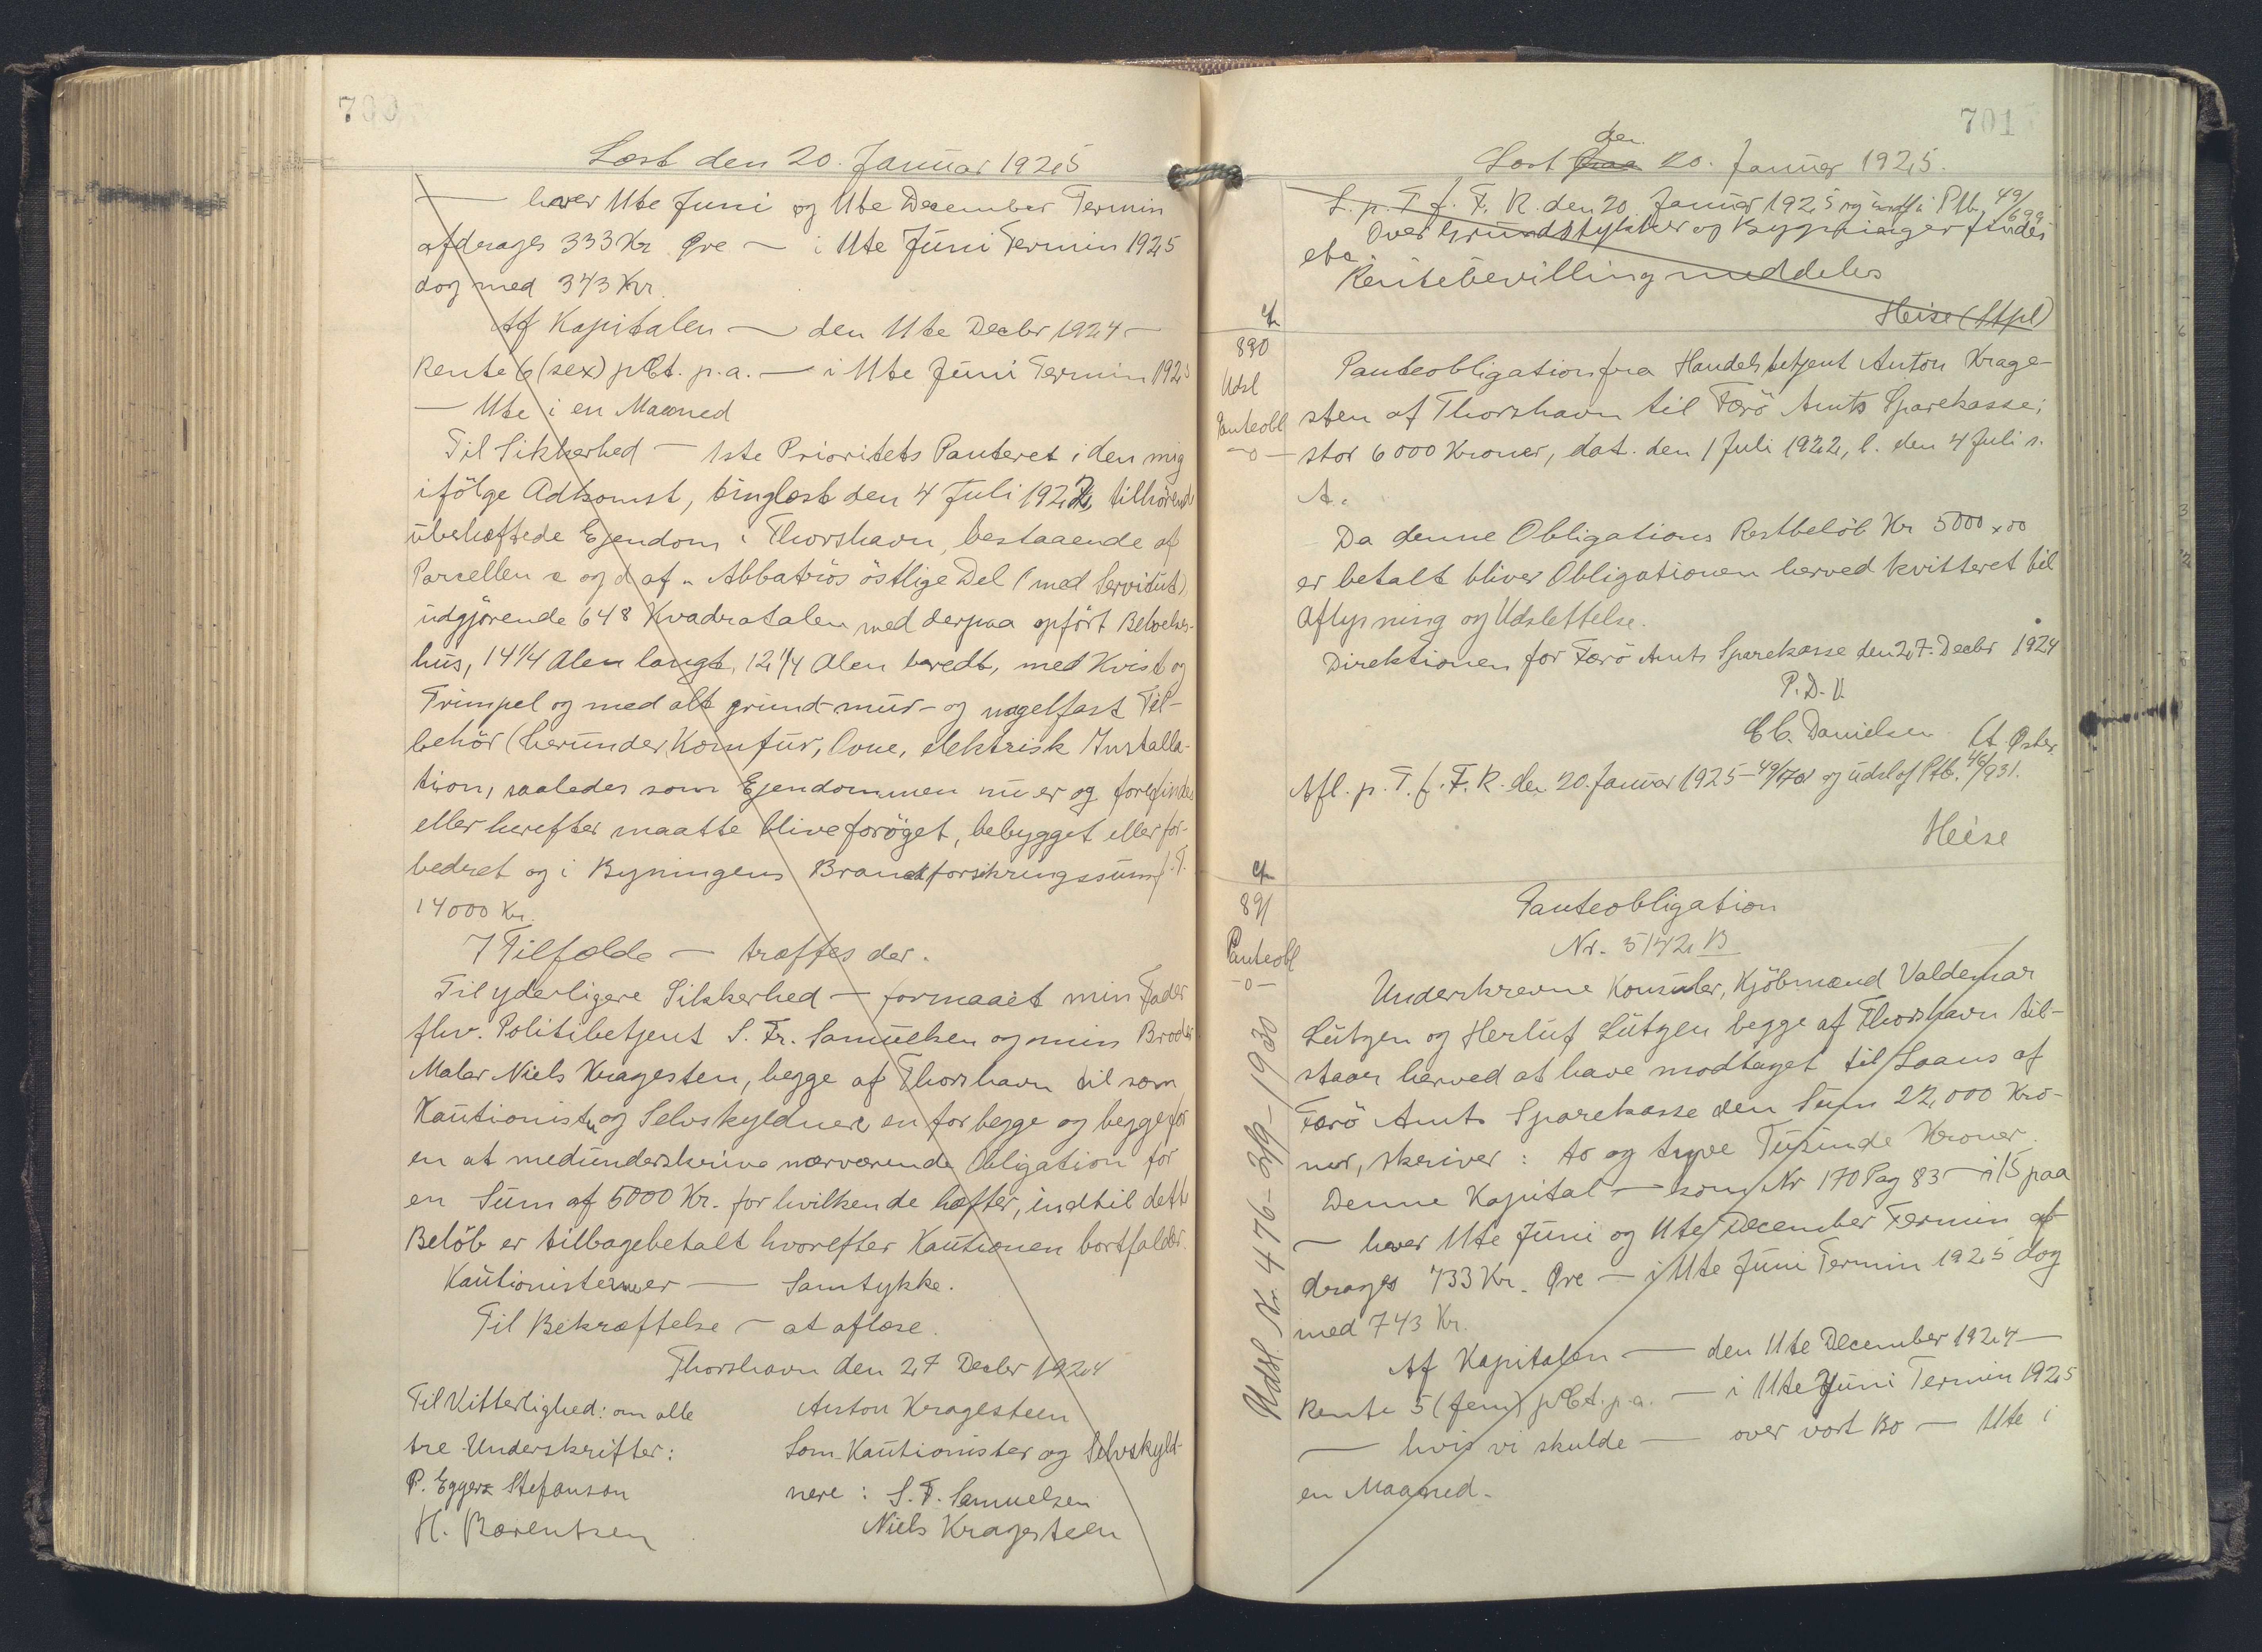 700
Læst den 20. Januar 1925
— hver 11te Juni og 11te December Termin
afdrages 333 Kr Øre — i 11te Juni Termin 1925
dog med 343 Kr.
Af Kapitalen — den 11te Decbr 1924 —
Rente 6 (sex) pCt. p.a. — i 11te Juni Termin 1925
— 11te i en Maaned
Til Sikkerhed — 1ste Prioritets Panteret i den mig
ifölge Adkomst, tinglæst den 4 Juli 1922, tilhörende
ubehæftede Ejendom i Thorshavn, bestaaende af
Parcellen c og d af „ Abbatrös östlige Del (med Servitut)
udgjörende 648 Kvadratalen med derpaa opfört Beboelses-
hus, 14 1/4 Alen langt, 12 1/4 Alen bredt, med Kvist og
Trimpel og med alt grund- mur- og nagelfast Til-
behör (herunder Komfur, Ovne, elektrisk Installa-
tion, saaledes som Ejendommen nu er og forefindes
eller herefter maatte blive foröget, bebygget eller for-
bedret og i Bygningens Brandforsikringssum f. T.
14000 Kr.
I Tilfælde — træffes der.
Til yderligere Sikkerhed — formaaet min Fader
fhv. Politibetjent S. Fr. Samuelsen og min Broder
Maler Niels Kragesten, begge af Thorshavn til som
Kautionister og Selvskyldnere en for begge og begge for
en at medunderskrive nærværende Obligation for
en Sum af 5000 Kr. for hvilken de hæfter, indtil dette
Belöb er tilbagebetalt hvorefter Kautionen bortfalder.
Kautionisterne er — Samtykke.
Til Bekræftelse — at aflæse.
Thorshavn den 27 Decbr 1924
Til Vitterlighed: om alle Anton Kragesteen
tre Underskrifter: Som Kautionister og Selvskyld-
P. Eggerz Stefanson nere : S. F. Samuelsen
H. Bærentsen Niels Kragesteen
701
den
Læst paa 20. Januar 1925.
L. p. T. f. F. R. den 20 Januar 1925 og indf i Ptb. 49/699
Over Grundstykker og Bygninger findes
ete.
Rentebevilling meddeles
Heise (Stpl)
890
Udsl
Panteobl
—o—
Panteobligation fra Handelsbetjent Anton Krage-
sten af Thorshavn til Færö Amts Sparekasse;
stor 6000 Kroner, dat. den 1 Juli 1922, l. den 4 Juli s.
A.
Da denne Obligations Restbelöb Kr 5000,00
er betalt bliver Obligationen herved kvitteret til
Aflysning og Udslettelse.
Direktionen for Færö Amts Sparekasse den 27. Decbr 1924
P. D. V
C C. Danielsen (A. Øster.
Afl. p. T. f. F. R. den 20. Januar 1925 - 49/701 og udsl af Ptb. 46/931.
Heise
891
Panteobl
—o—
Panteobligation
Nr. 5142 B
Underskrevne Konsuler, Kjöbmænd Valdemar
Lützen og Herluf Lützen begge af Thorshavn til-
staar herved at have modtaget til Laans af
Færö Amts Sparekasse den Sum 22,000 Kro-
ner, skriver : to og tyve Tusinde Kroner.
Denne Kapital — som Nr 170 Pag 83 — i 15 paa
— hver 11te Juni og 11te December Termin af
drages 733 Kr. Øre — i 11te Juni Termin 1925 dog
med 743 Kr.
Af Kapitalen — den 11te December 1924 —
Rente 5 (fem) pCt. p.a. — i 11te Juni Termin 1925
— hvis vi skulde — over vort Bo — 11te i
en Maaned.
Udsl. Nr 476 - 2/9 - 1930